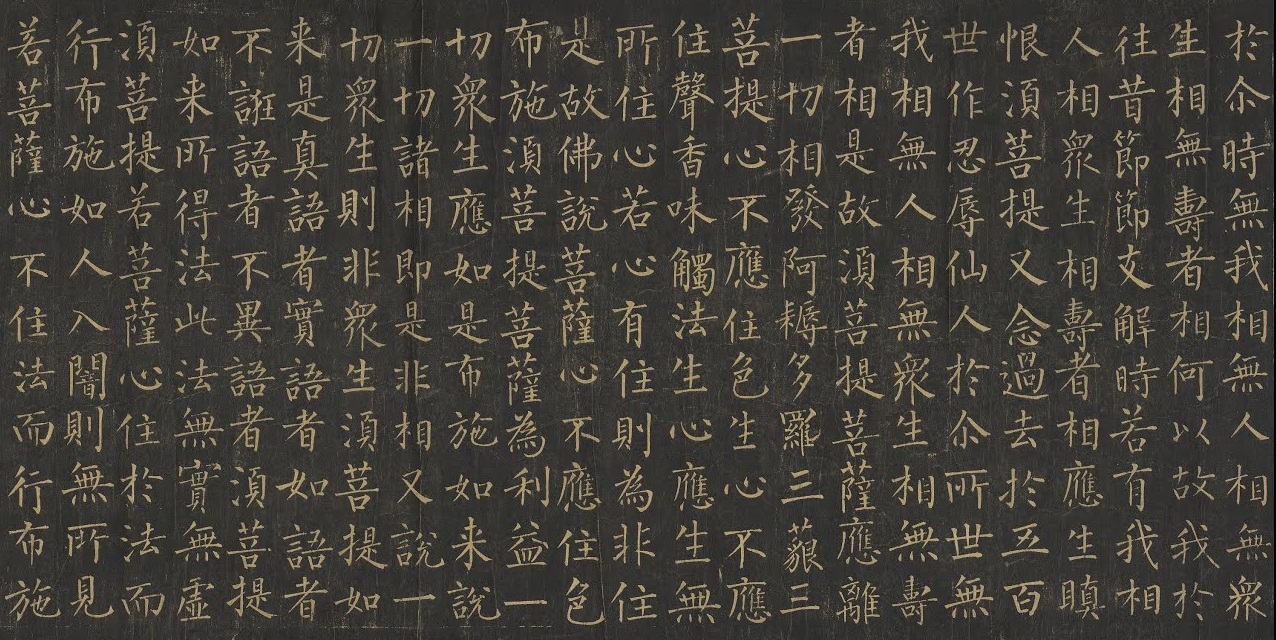 於尒時無我相無人相無眾
生相無壽者相何以故我於
往昔節節支解時若有我相
人相眾生相壽者相應生瞋
恨須菩提又念過去於五百
世作忍辱仙人於尒所世無
我相無人相無眾生相無壽
者相是故須菩提菩薩應離
一切相發阿耨多羅三藐三
菩提心不應住色生心不應
住聲香味觸法生心應生無
所住心若心有住則為非住
是故佛說菩薩心不應住色
布施須菩提菩薩為利益一
切眾生應如是布施如来說
一切諸相即是非相又說一
切眾生則非眾生須菩提如
来是真語者實語者如語者
不誑語者不異語者須菩提
如来所得法此法無實無虛
須菩提若菩薩心住於法而
行布施如人入闇則無所見
若菩薩心不住法而行布施